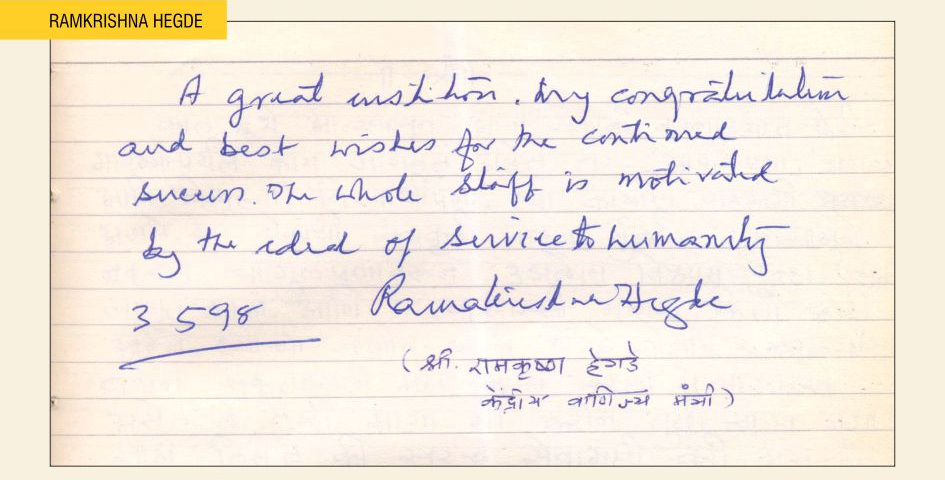 RAMKRISHNA HEGDE
A great institution. My congratulation
and best wishes for the continued
success. The whole staff is motivated
by the ideal of service to humanity
3 598 Ramakrishna Hegde
(श्री. रामकृष्ण हेगडे
केंद्रीय वाणिज्य मंत्री)